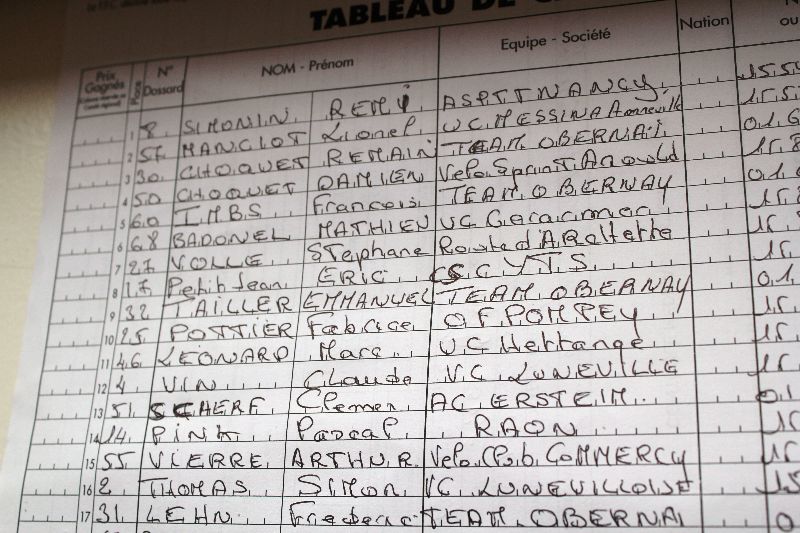 TABLEAU DE
Prix Gagnés Place N° Dossard NOM - Prénom Equipe - Société Nation ou
1 8 SIMONIN REMI ASPTT NANCY 15.54
2 57 MANGIOT Lionel UC MESSINA Anneville 15.5
3 30 CHOQUET REMAIN TEAM OBERNAI 01.6
4 50 CHOQUET DAMIEN Velo Sprint Anould 15.8
5 60 IMBS Francois TEAM OBERNAY 01.6
6 68 BADONEL MATHIEU VC 15.
7 27 VOLLE Stephane Route d'A 15.
8 17 Petit Jean ERIC SCYTS 15.
9 32 TAILLER EMMANUEL TEAM OBERNAY 01.
10 25 POTTIER Fabrice OF POMPEY 15.
11 46 LEONARD Marc UC Hettange 15.
12 4 VIN Claude VC LUNEVILLE 15.
13 51 SCHERF Clemen AC ERSTEIN 01
14 14 PINK Pascal RAON 15.
15 55 VIERRE ARTHUR Velo Club COMMERCY 15
16 2 THOMAS Simon VC LUNEVILLOISE 15
17 31 LEHN Frederic TEAM OBERNAI 0